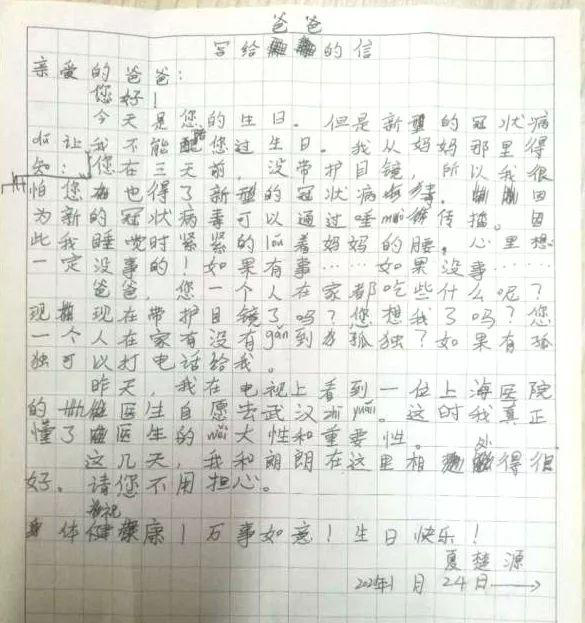 爸爸
写给的信
亲爱的爸爸:
您好!
今天是您的生日。但是新型的冠状病
dú让我不能陪您过生日。我从妈妈那里得
知:您在三天前,没带护目镜,所以我很
怕您也得了新型的冠状病毒。因
为新的冠状病毒可以通过唾传播。因
此我睡觉时紧紧的lǒu着妈妈的腰。心里想
一定没事的!如果有事……如果没事……
爸爸,您一个人在家都吃些什么呢?
现在带护目镜了吗?您想我了吗?您
一个人在家有没有gǎn到孤独?如果有孤
独可以打电话给我。
昨天,我在电视上看到一位上海医院
的医生自愿去武汉zhī yuán。这时我真正
懂了医生的wěi大性和重要性。
这几天,我和朗朗在这里相处得很
好。请您不用担心。
祝
身体健康!万事如意!生日快乐!
夏楚源
月24日